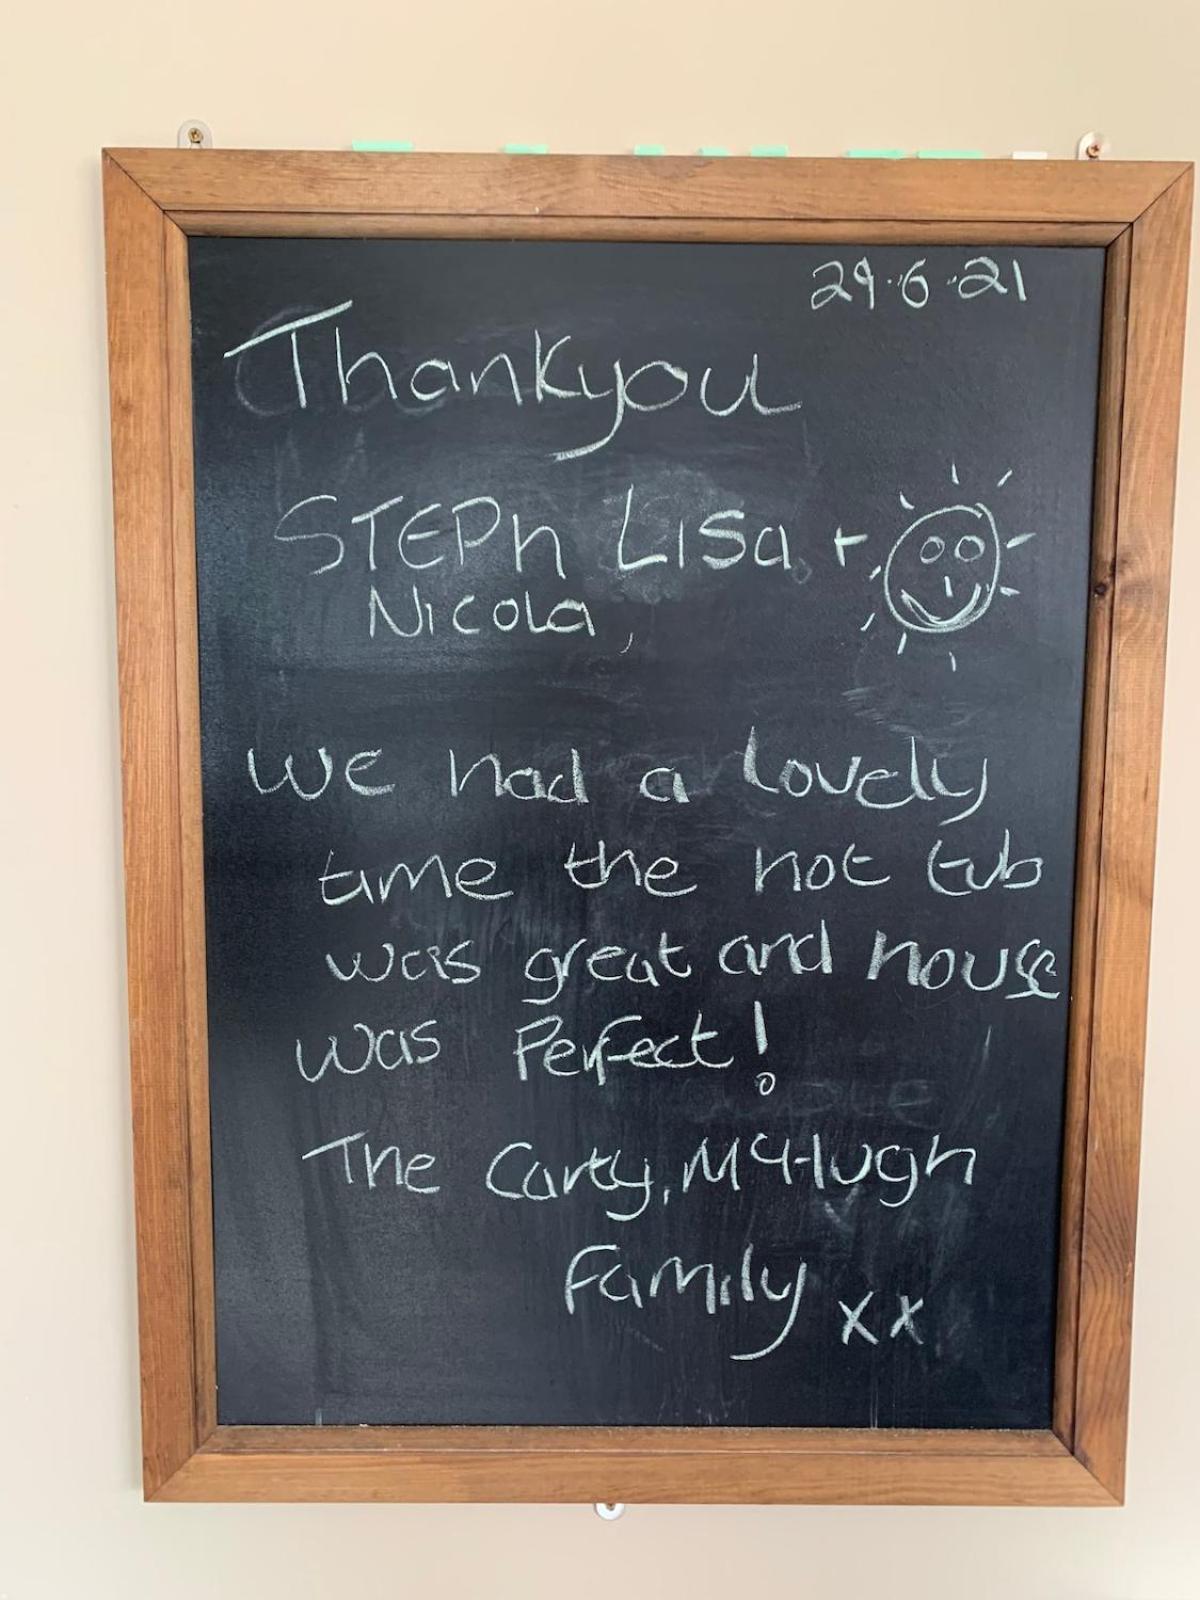 29.6.21
Thankyou
STEPh Lisa +
Nicola,
we had a lovely
time the hot tub
was great and house
was Perfect!
The Carty, McHugh
Family xx